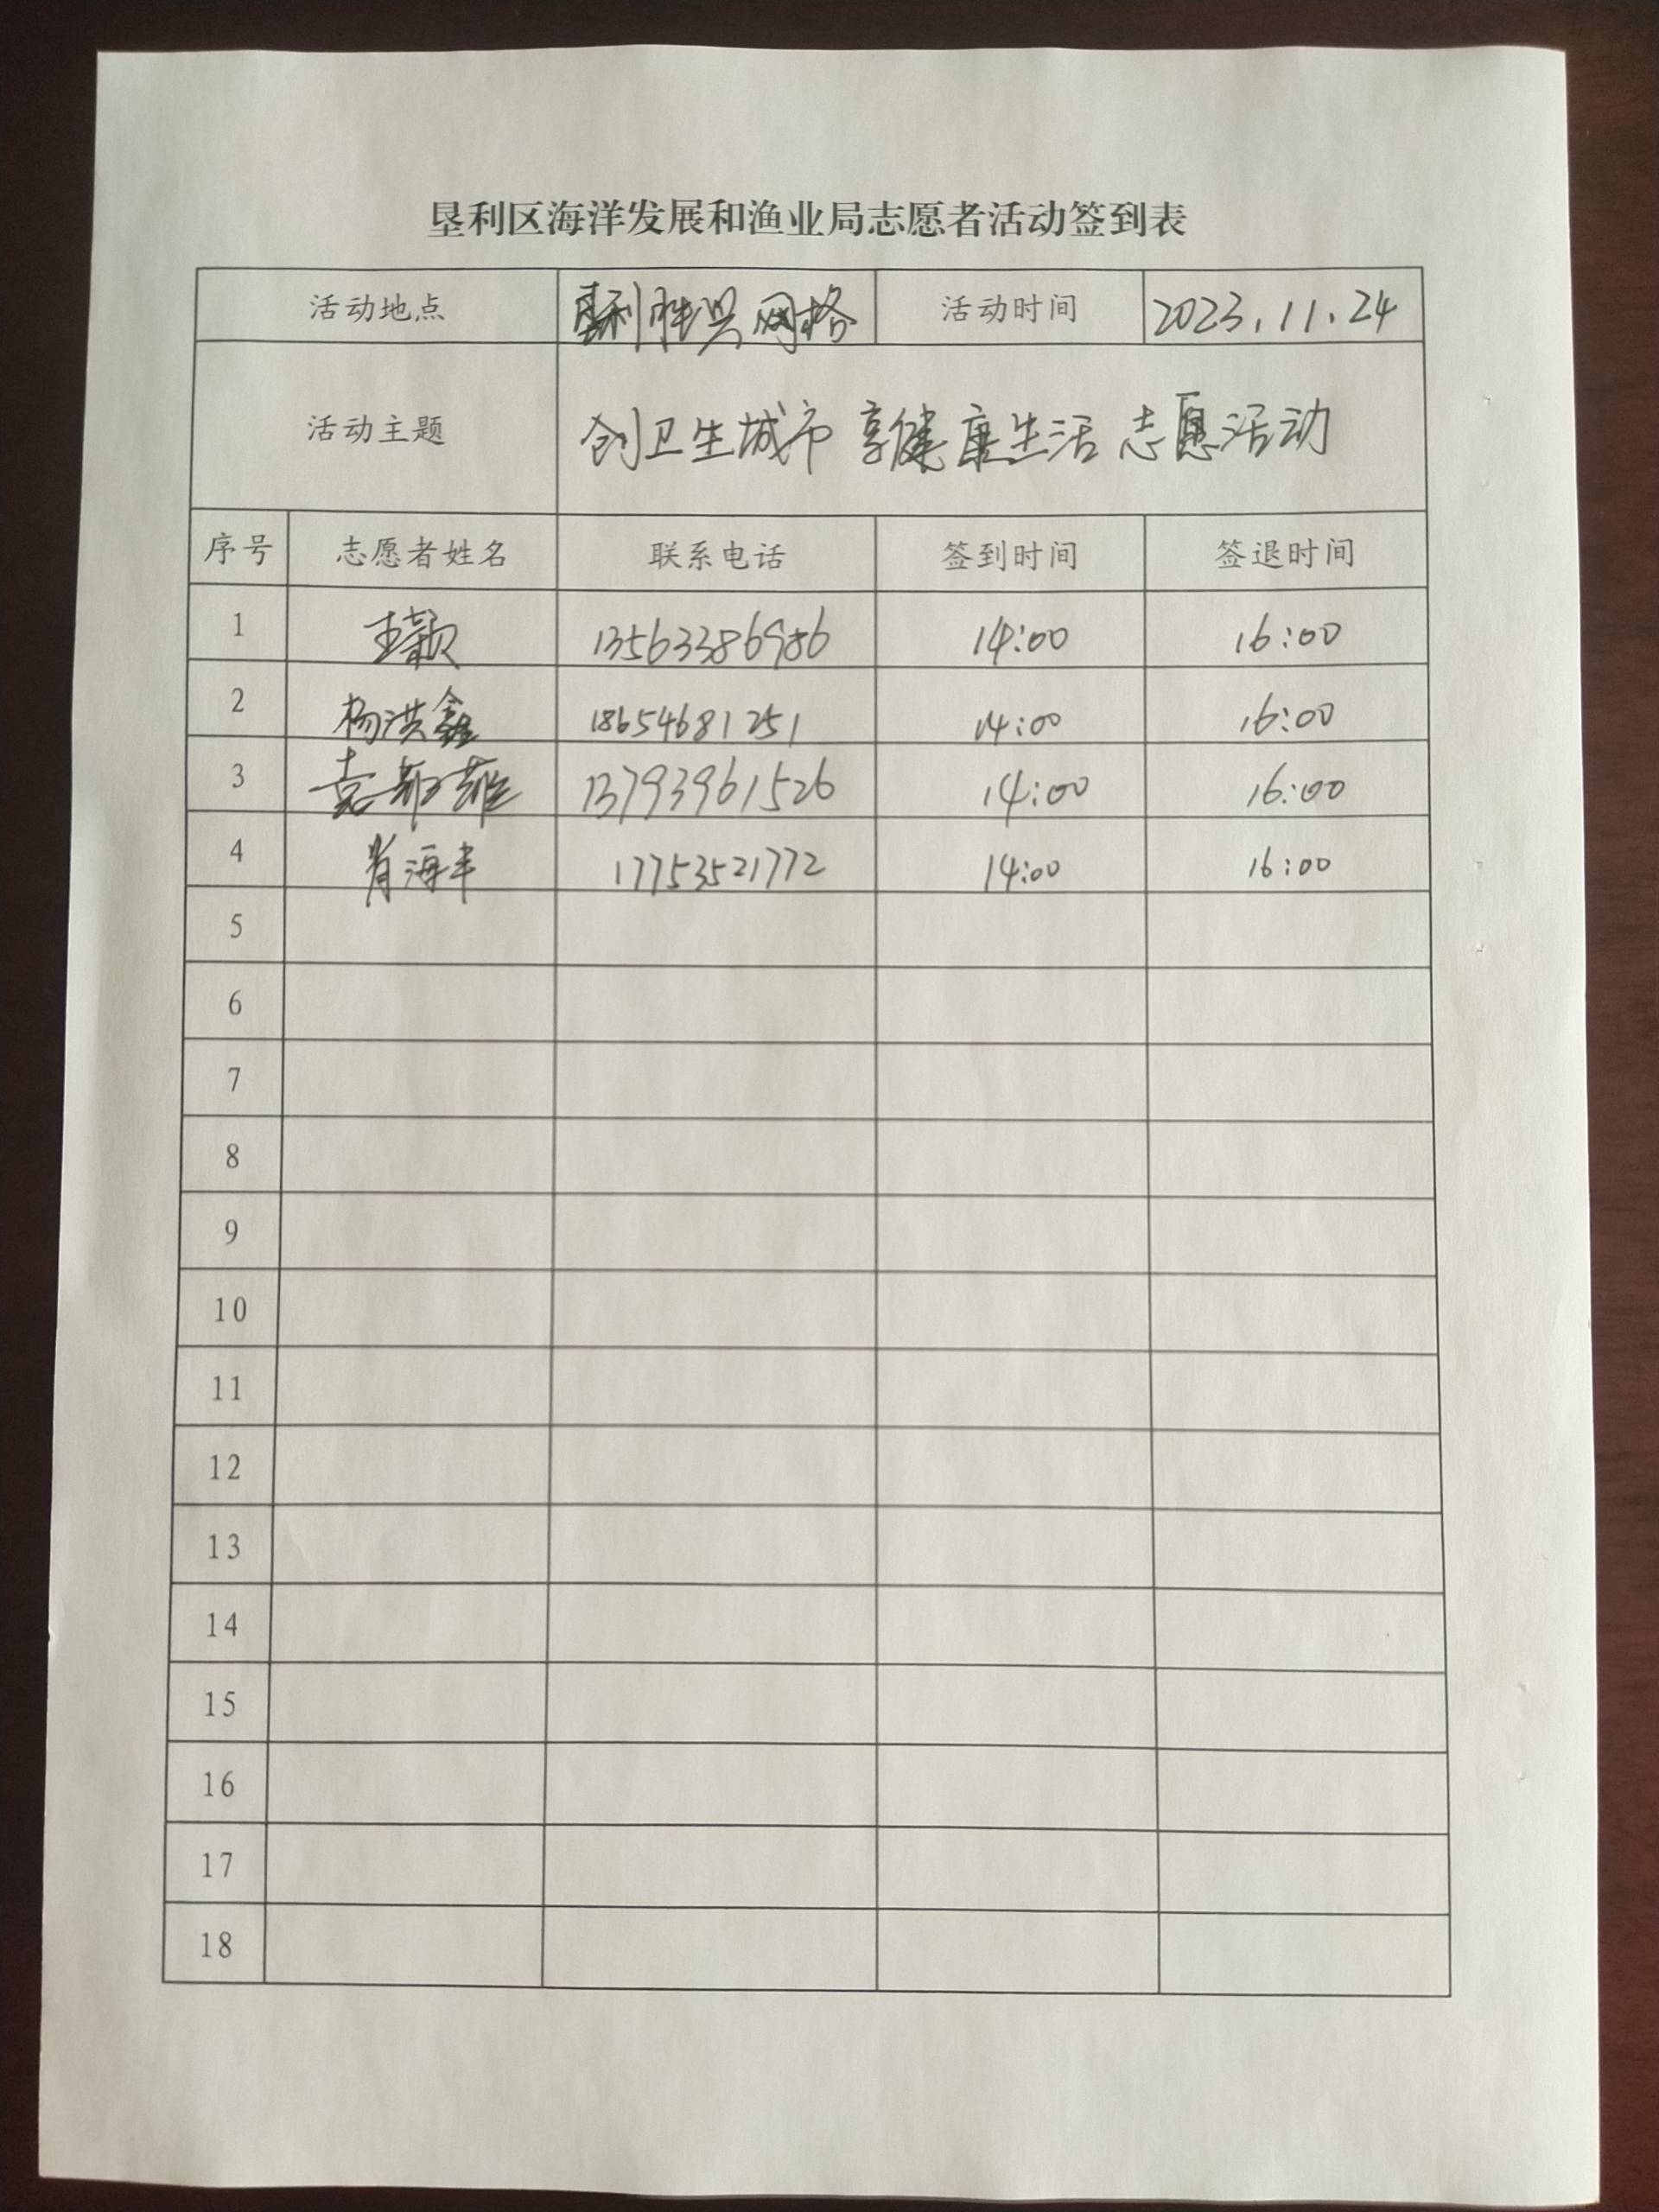 垦利区海洋发展和渔业局志愿者活动签到表
活动地点 胜兴网格 活动时间 2023.11.24
活动主题 创卫生城市 享健康生活 志愿活动
序号 志愿者姓名 联系电话 签到时间 签退时间
1 王颖 13563386986 14:00 16:00
2 杨洪鑫 18654681251 14:00 16:00
3 13793961526 14:00 16:00
4 肖海丰 17753521772 14:00 16:00
5
6
7
8
9
10
11
12
13
14
15
16
17
18